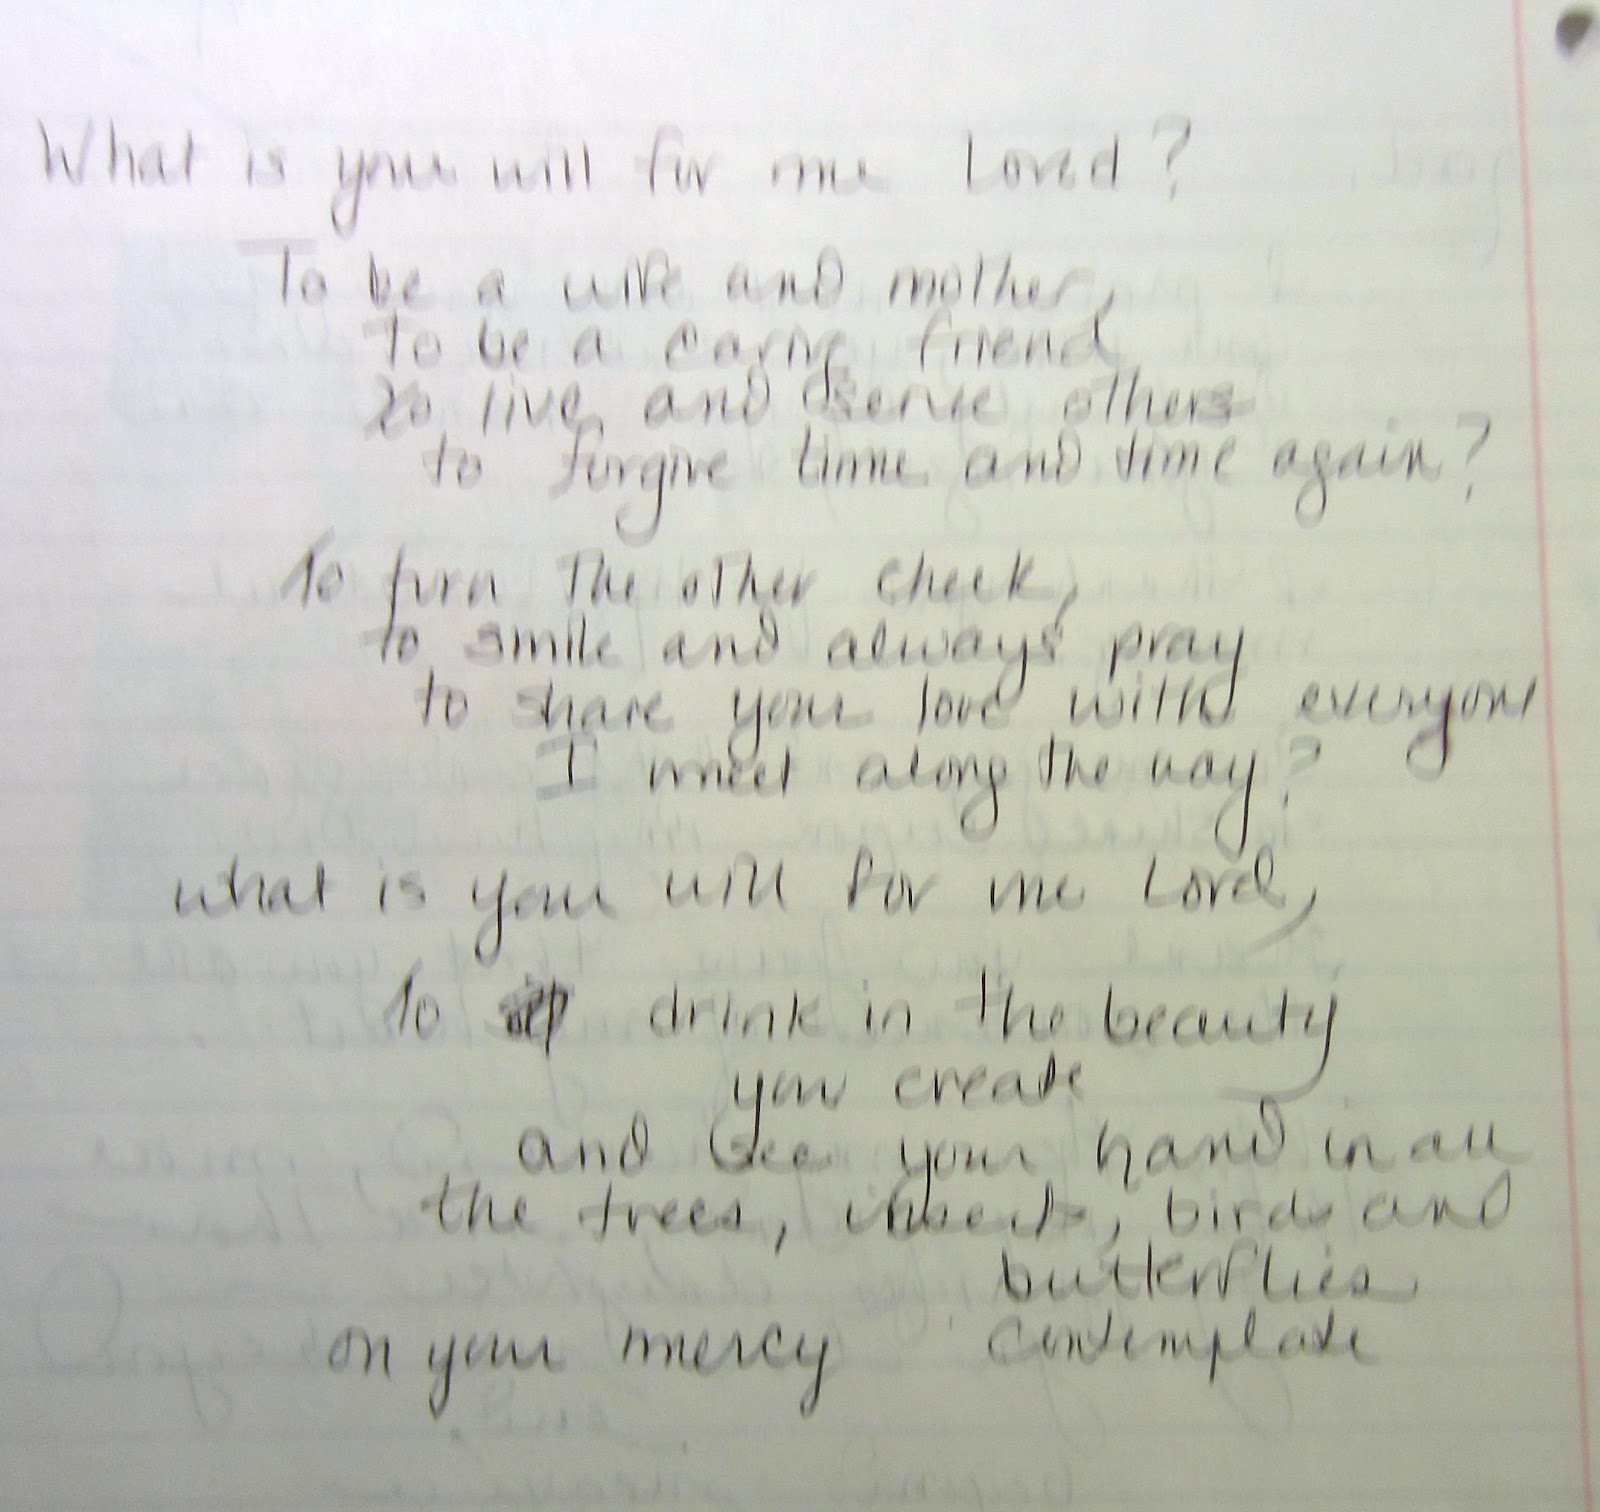 What is your will for me Loved?
To be a wife and mother,
To be a caring friend
to live and serve others
to forgive time and time again?
To turn the other cheek,
to smile and always pray
to share your love with everyone
I meet along the way?
what is your will for me Lord,
To drink in the beauty
you create
and see your hand in all
the trees, insects, birds and
butterflies
on your mercy contemplate